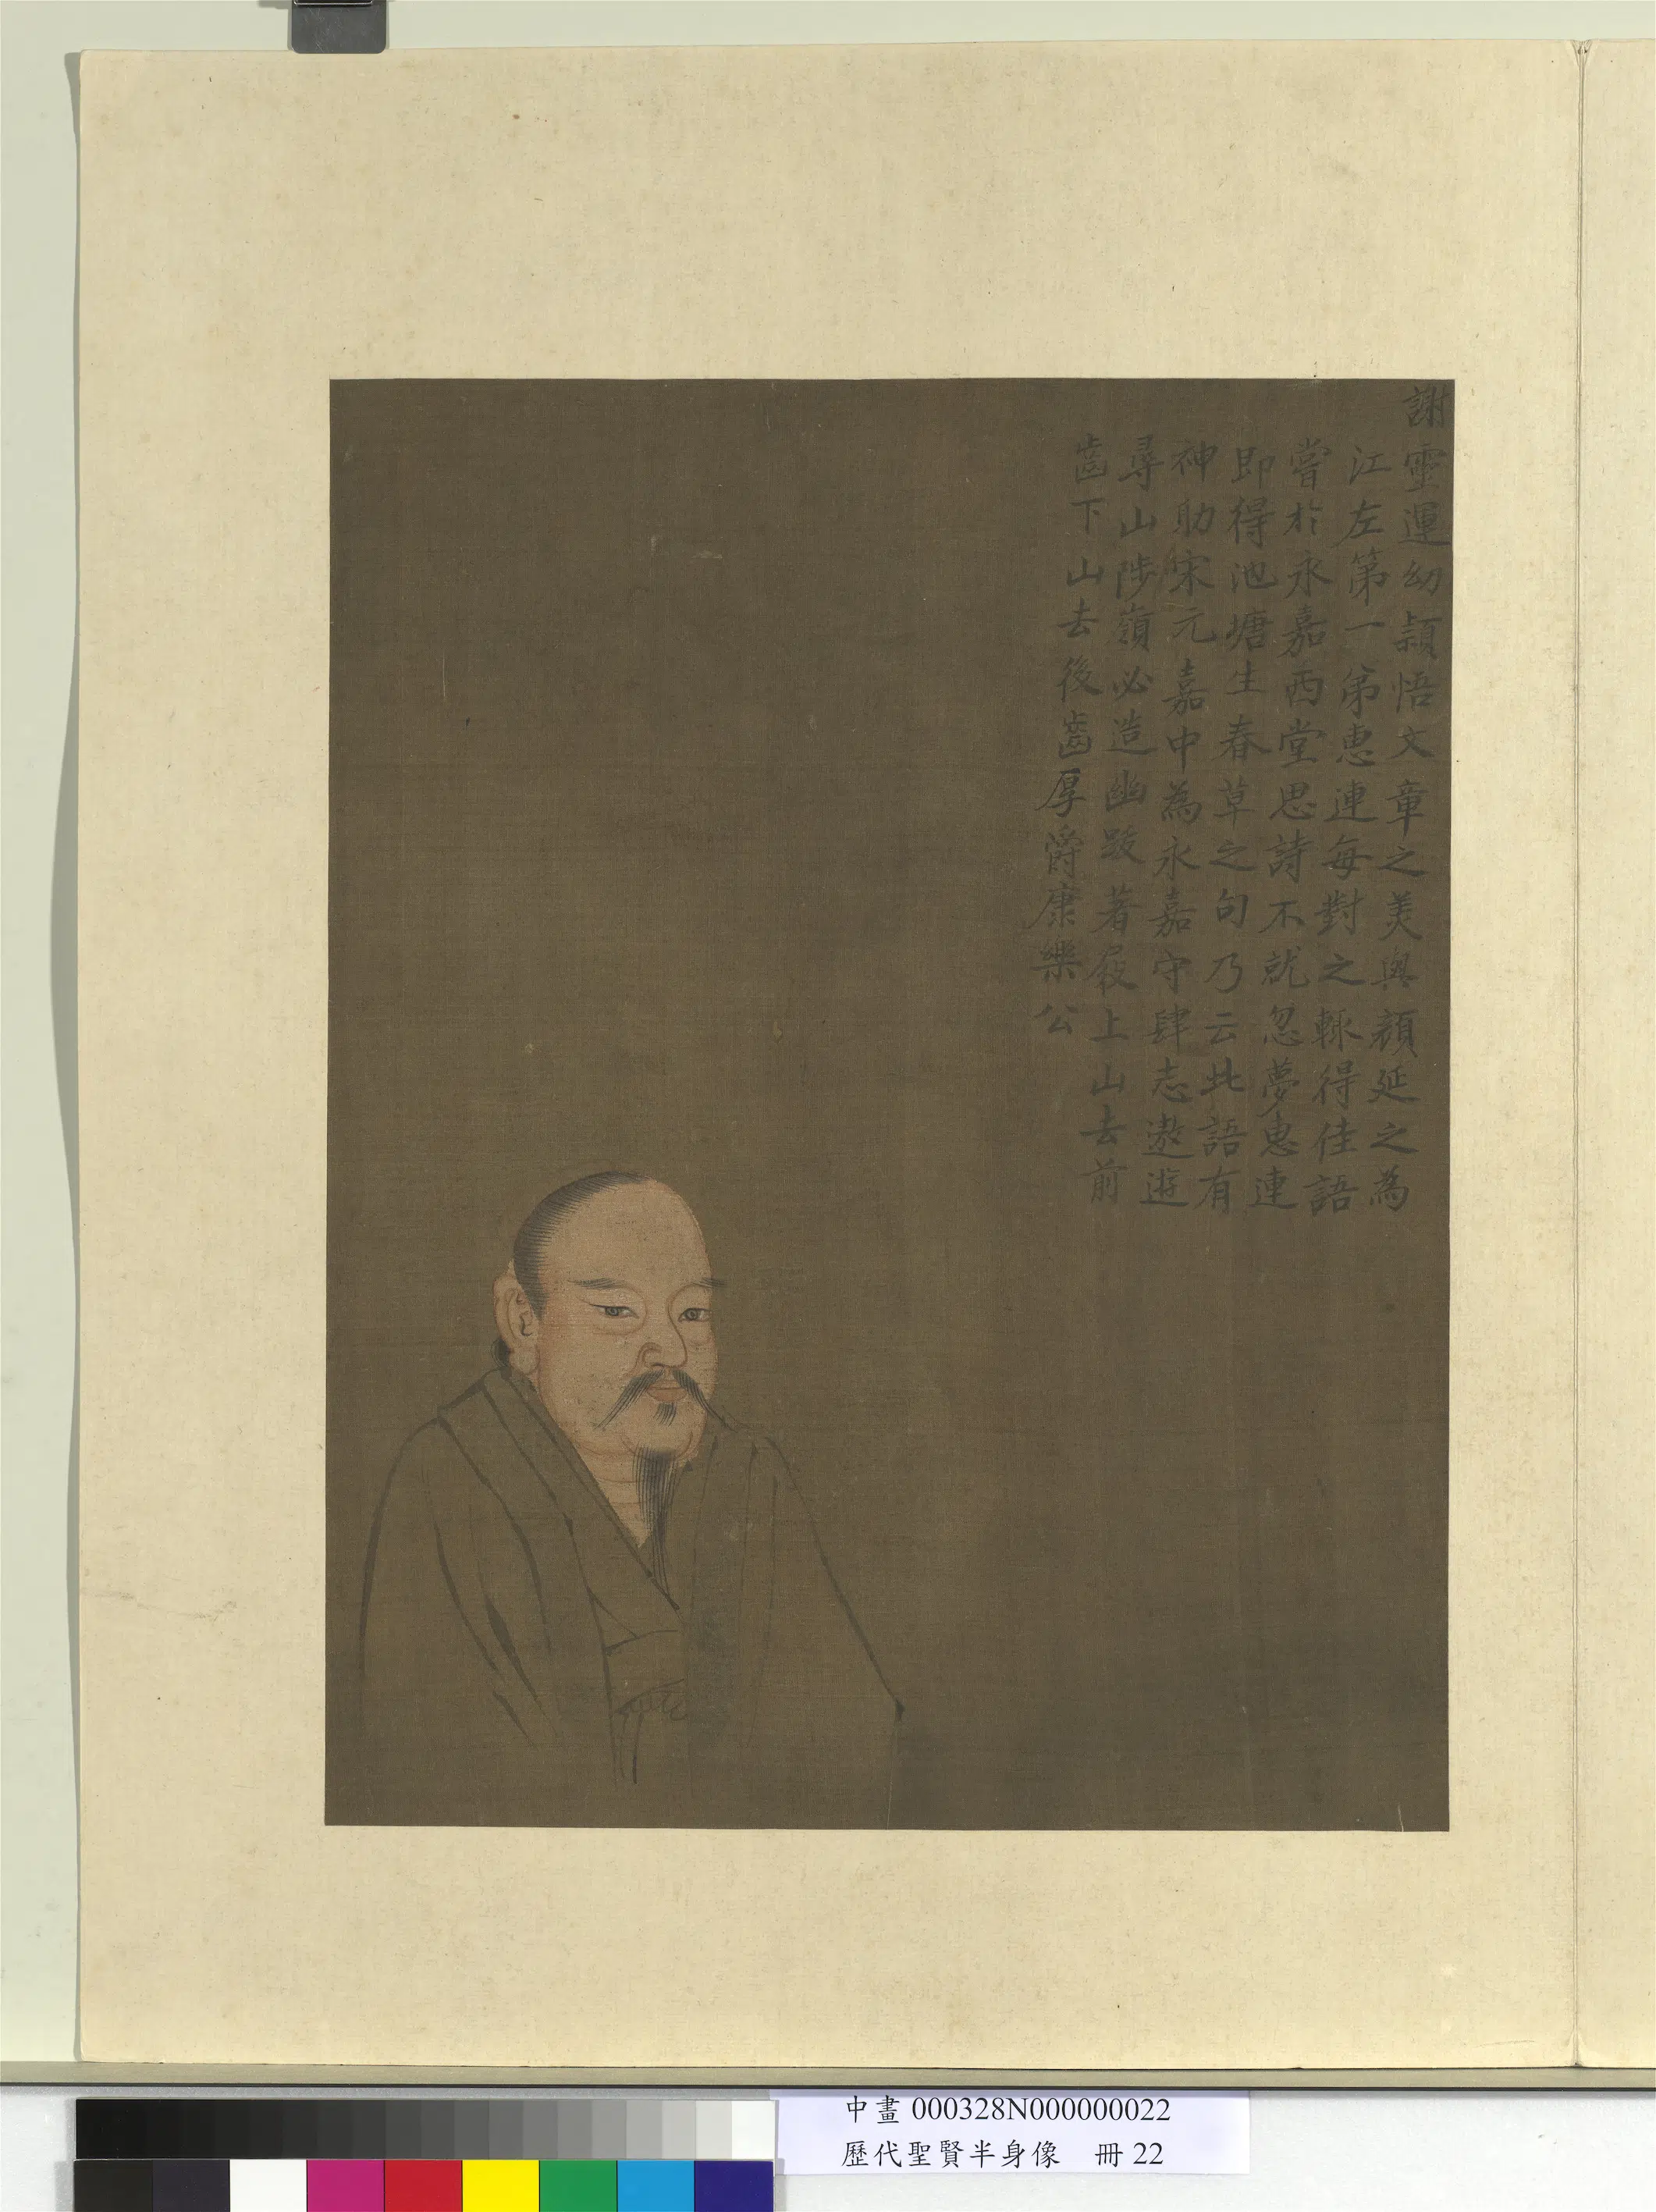 謝靈運幼頴悟文章之美與顏延之為
江左第一弟惠連每對之輙得佳語
嘗於永嘉西堂思詩不就忽夢惠連
即得池塘生春草之句乃云此語有
神助宋元嘉中為永嘉守肆志遨遊
尋山陟嶺必造幽踐著屐上山去前
齒下山去後齒厚爵康樂公
中畫 000328N000000022
歷代聖賢半身像 冊 22